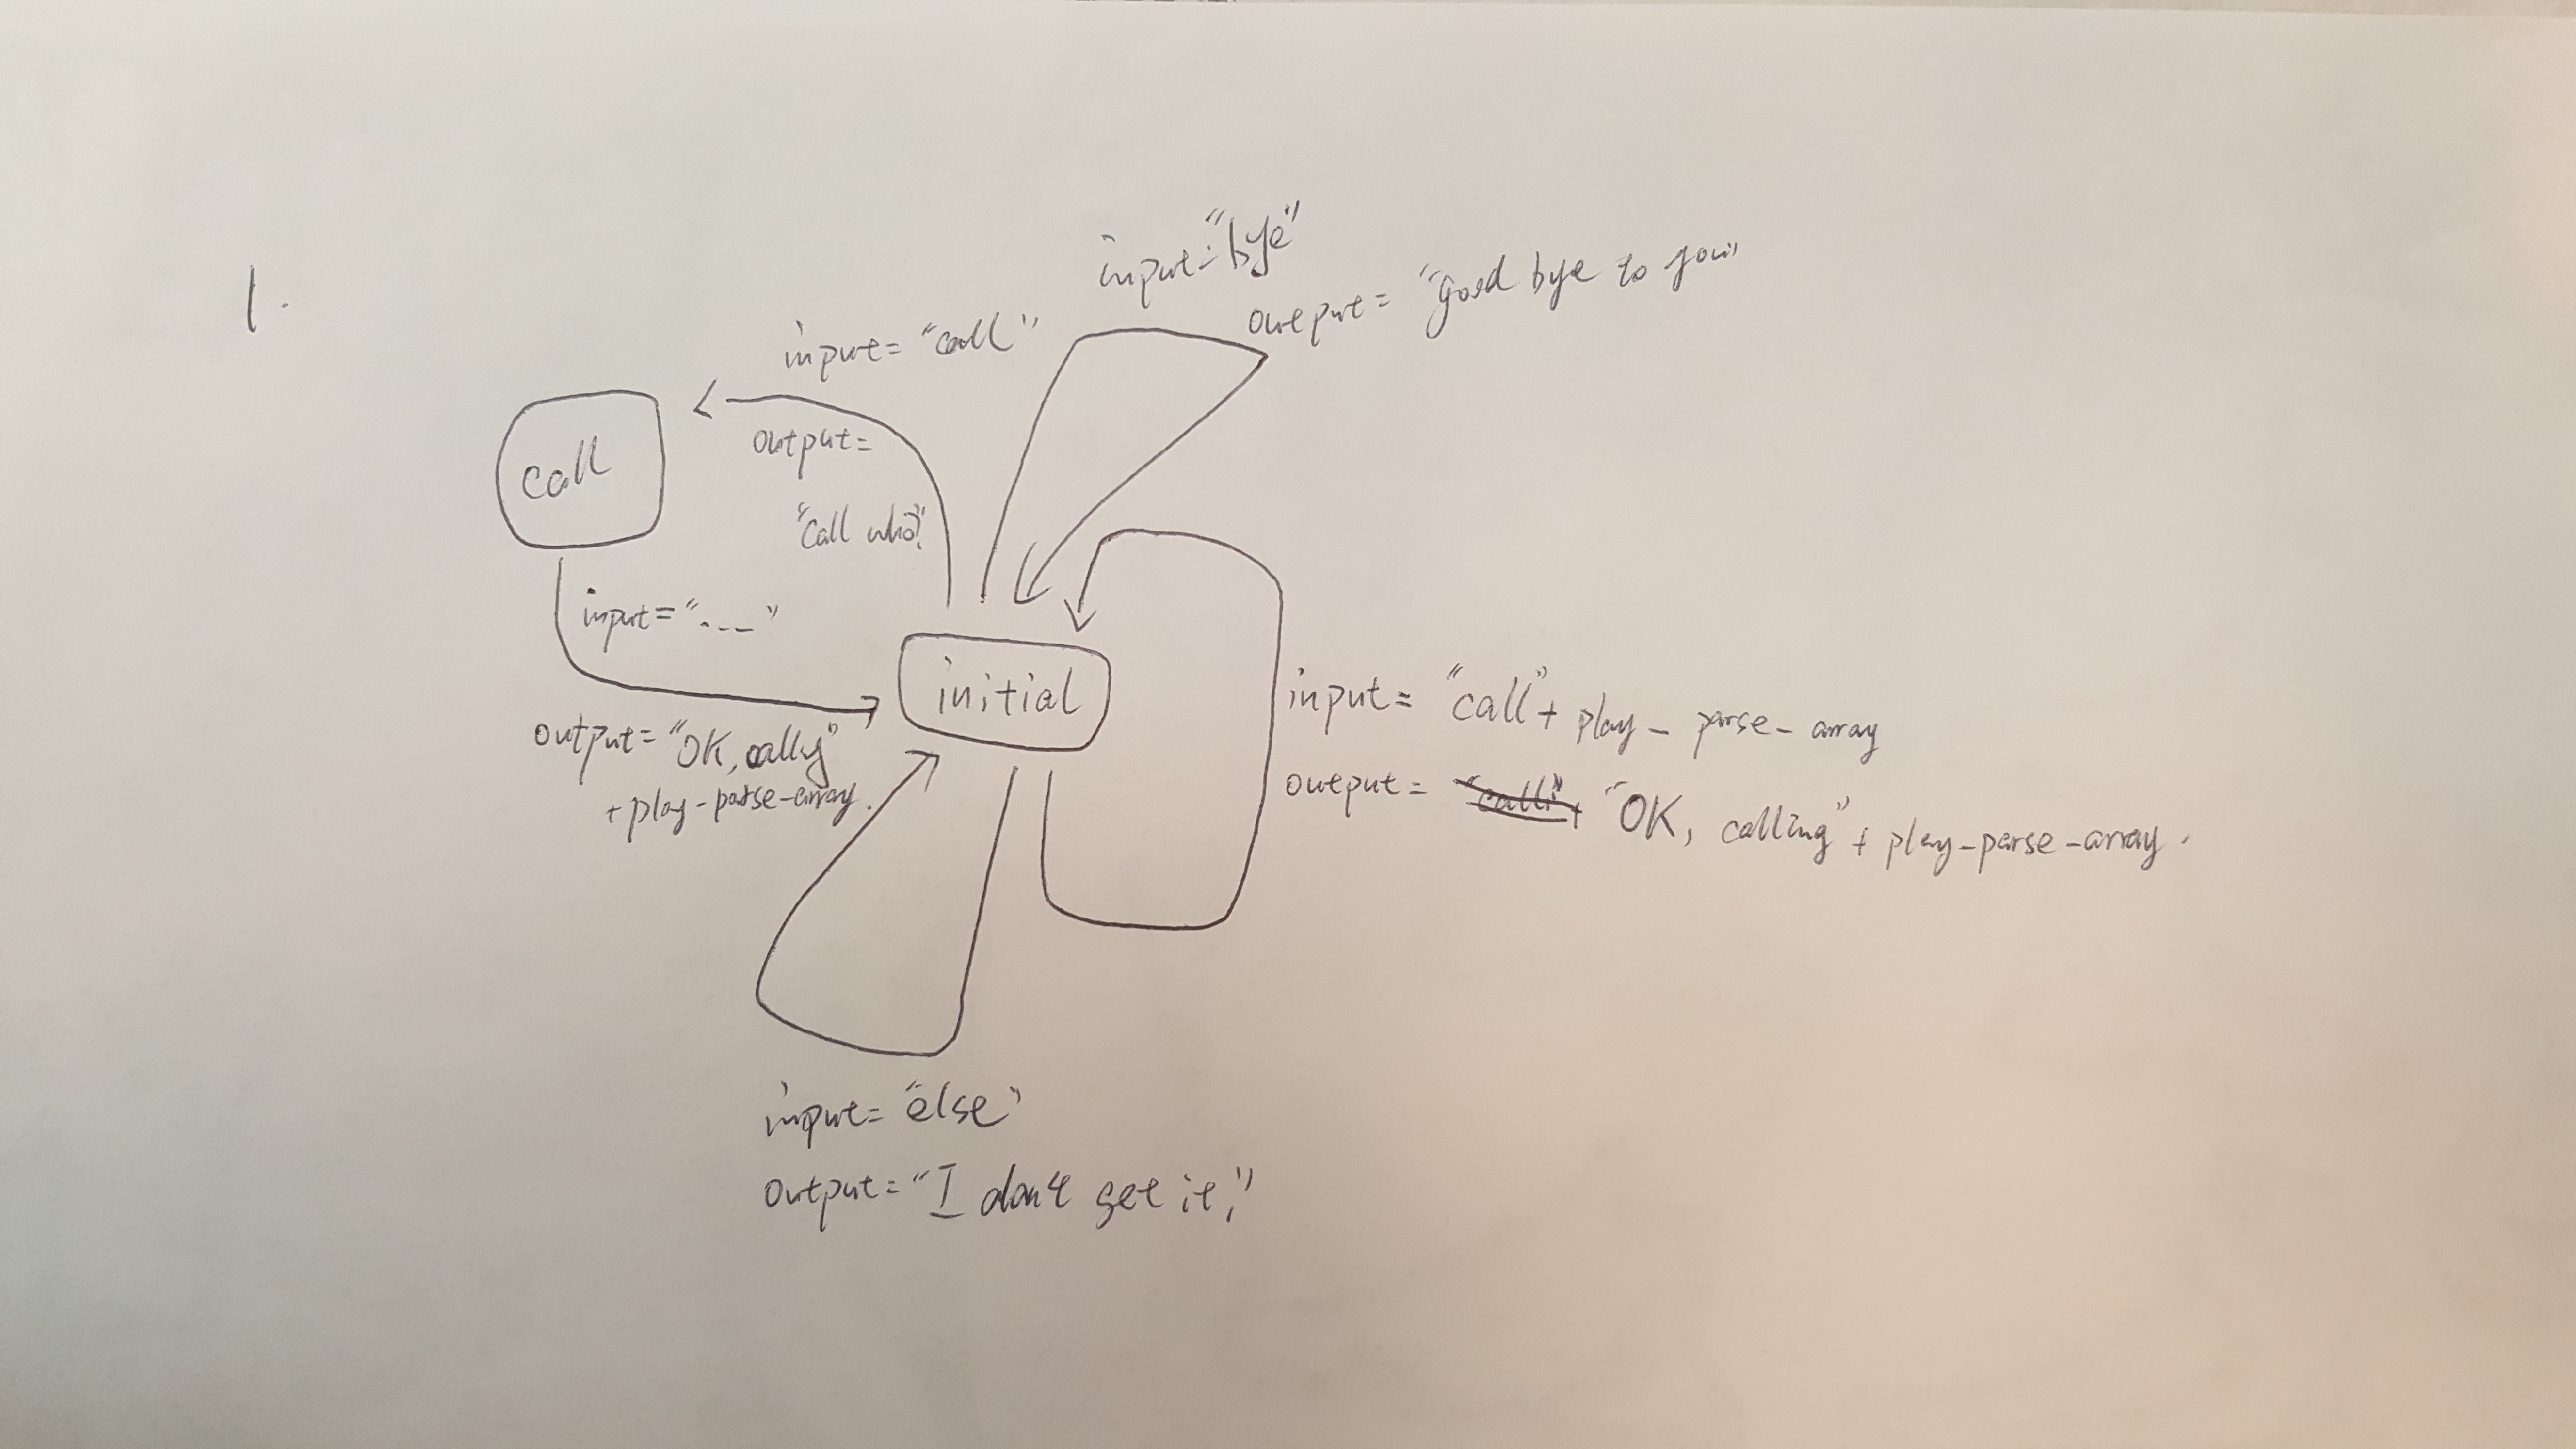 1.
input="bye"
output= "good bye to you"
input= "call"
output=
"Call who?"
call
input="---"
initial
output="OK, calling"
+ play-parse-array.
input= "call"+ play- parse- array
output= "OK, calling" + play-parse-array.
input="else"
output="I don't get it."